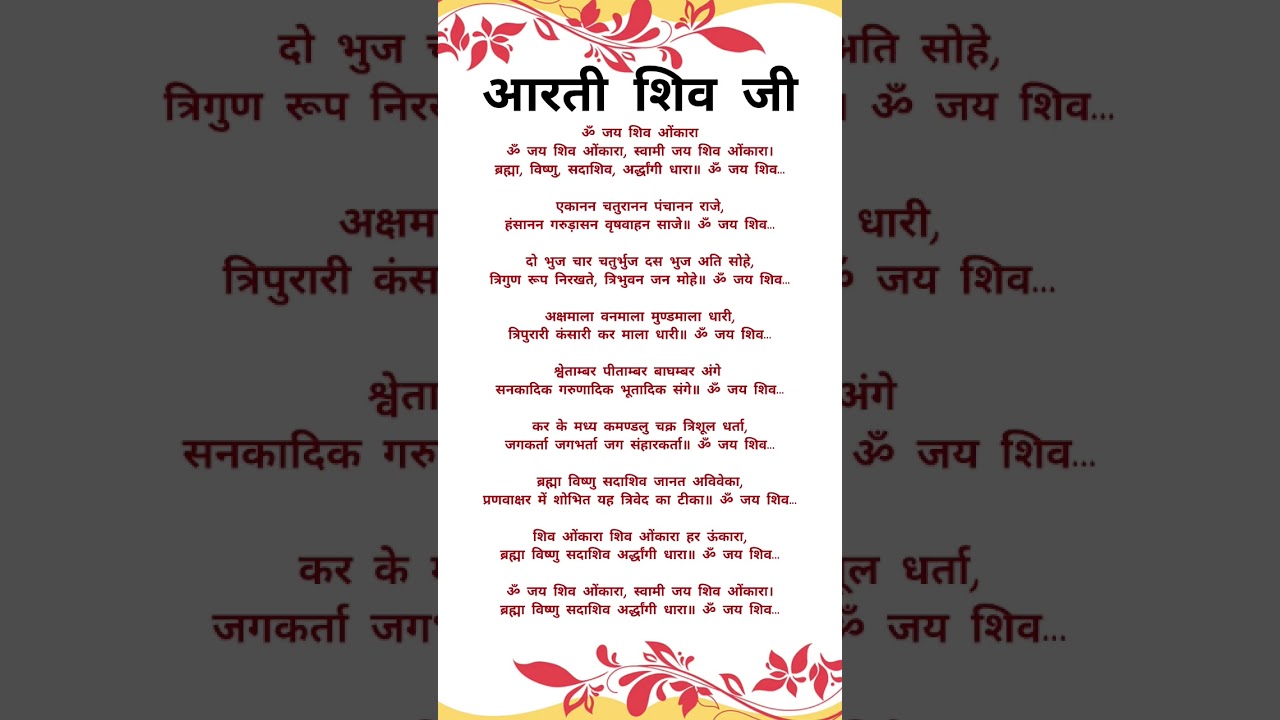 आरती शिव जी
ॐ जय शिव ओंकारा
ॐ जय शिव ओंकारा, स्वामी जय शिव ओंकारा।
ब्रह्मा, विष्णु, सदाशिव, अर्द्धांगी धारा॥ ॐ जय शिव...
एकानन चतुरानन पंचानन राजे,
हंसानन गरुड़ासन वृषवाहन साजे॥ ॐ जय शिव...
दो भुज चार चतुर्भुज दस भुज अति सोहे,
त्रिगुण रूप निरखते, त्रिभुवन जन मोहे॥ ॐ जय शिव...
अक्षमाला वनमाला मुण्डमाला धारी,
त्रिपुरारी कंसारी कर माला धारी॥ ॐ जय शिव...
श्वेताम्बर पीताम्बर बाघम्बर अंगे
सनकादिक गरुणादिक भूतादिक संगे॥ ॐ जय शिव...
कर के मध्य कमण्डलु चक्र त्रिशूल धर्ता,
जगकर्ता जगभर्ता जग संहारकर्ता॥ ॐ जय शिव...
ब्रह्मा विष्णु सदाशिव जानत अविवेका,
प्रणवाक्षर में शोभित यह त्रिवेद का टीका॥ ॐ जय शिव...
शिव ओंकारा शिव ओंकारा हर ऊंकारा,
ब्रह्मा विष्णु सदाशिव अर्द्धांगी धारा॥ ॐ जय शिव...
ॐ जय शिव ओंकारा, स्वामी जय शिव ओंकारा।
ब्रह्मा विष्णु सदाशिव अर्द्धांगी धारा॥ ॐ जय शिव...